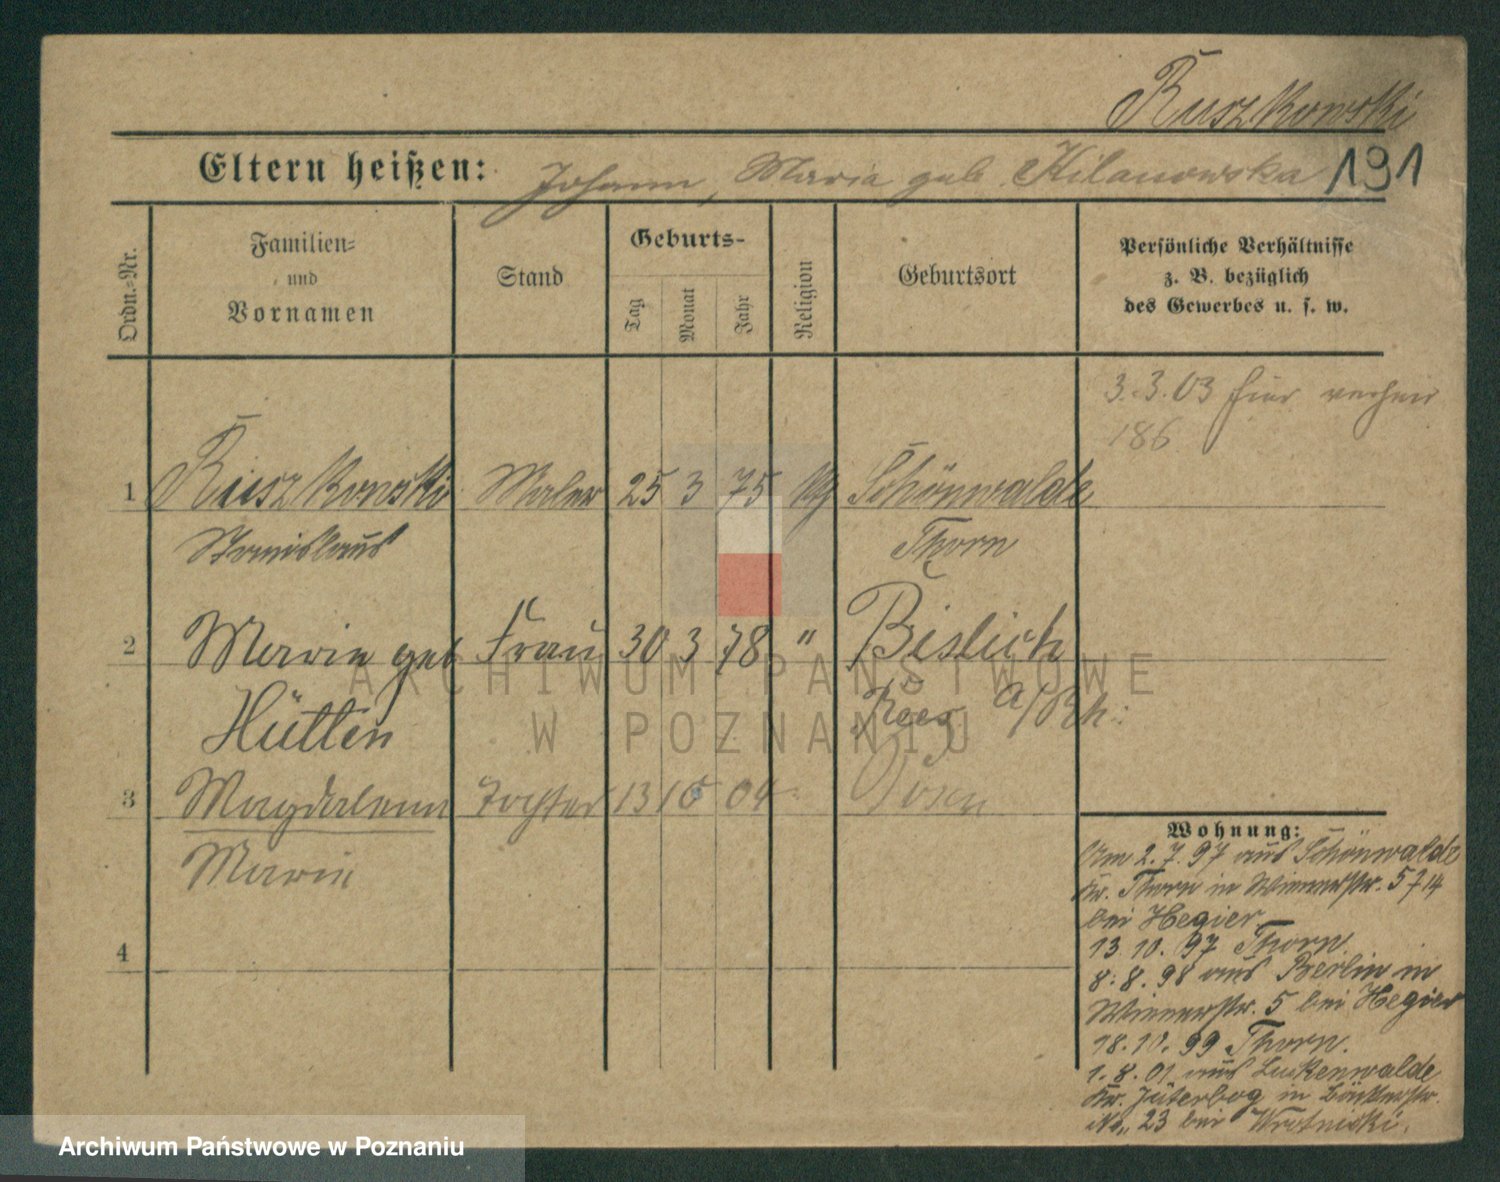 Ruszkowski
Eltern heißen: Johann, Maria geb. Kilanowska 191
Ordn.-Nr.
Familien-
und
Vornamen
Stand
Geburts-
Tag
Monat
Jahr
Religion
Geburtsort
Persönliche Verhältnisse
z. B. bezüglich
des Gewerbes u. s. w.
3.3.03 hier verheir
186
1 Ruszkowski Maler 25 3 75 kg Schönwalde
Stanislaus Thorn
2 Marie geb Frau 30 3 78 " Bislich
Hütten Rees a/Rh.
3 Magdalena Tochter 13 10 04 Posen
Marie
4
Wohnung:
Am 2.7.97 aus Schönwalde
Kr. Thorn in Wienerstr. 5
bei Hegier
13.10.97 Thorn
8.8.98 aus Berlin in
Wienerstr. 5 bei Hegier
18.10.99 Thorn.
1.8.01 aus Luckenwalde
Kr. Jüterbog in
No. 23 bei Wrotniski.
ARCHIWUM PAŃSTWOWE
W POZNANIU
Archiwum Państwowe w Poznaniu